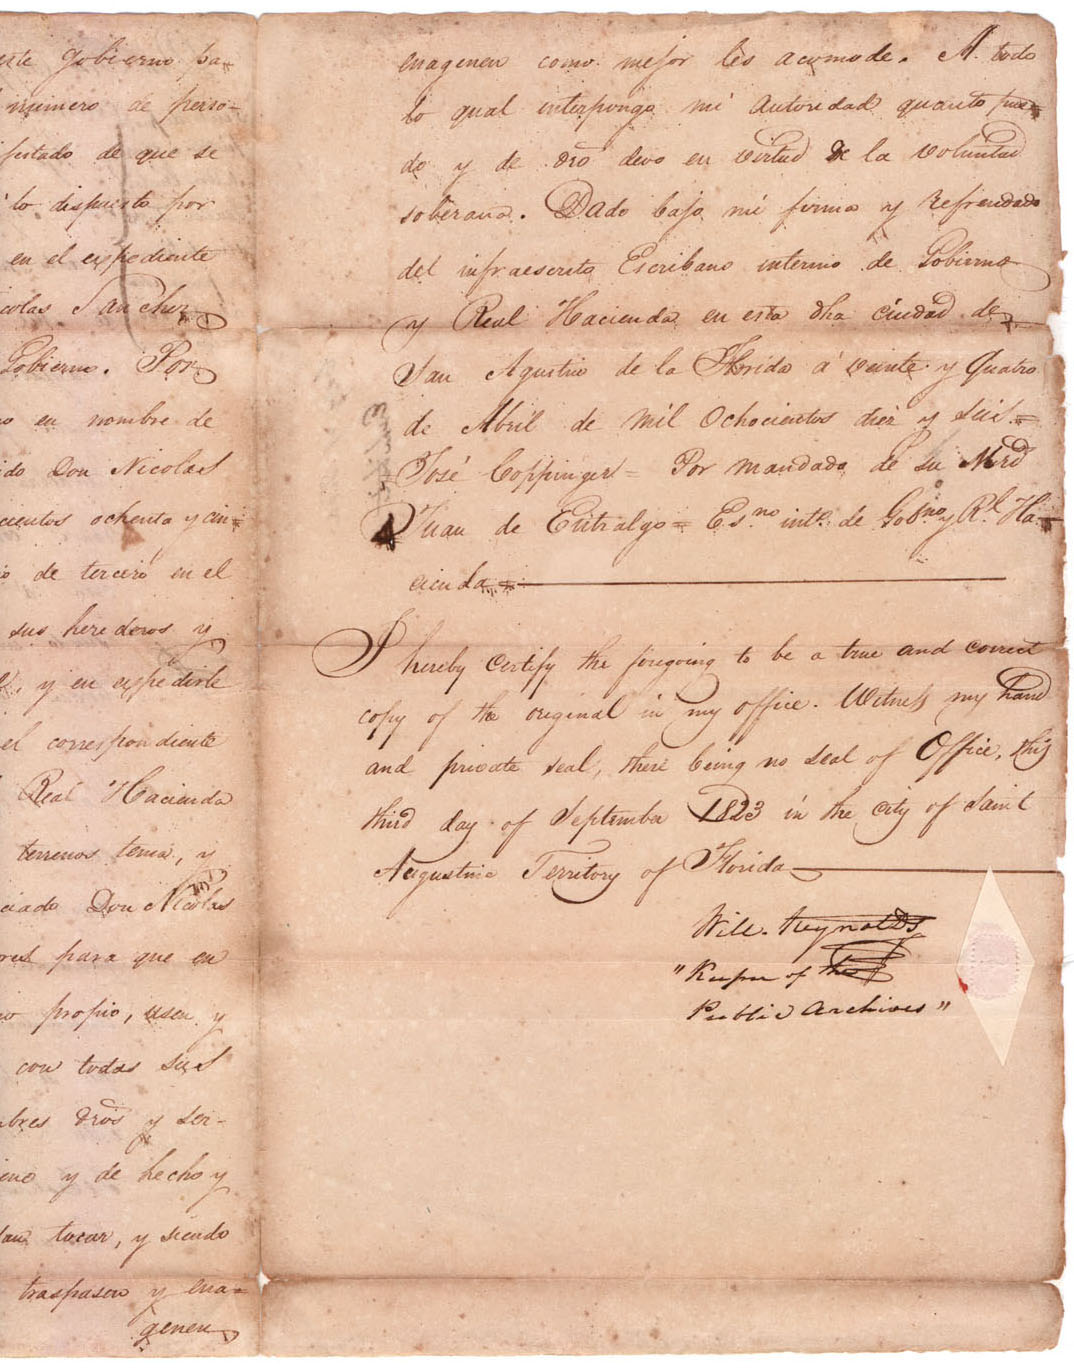 este Gobierno pa-
número de perso-
festado de que se
lo dispuesto por
en el expediente
colas Sanchez
Gobierno. Por
en nombre de
ido Don Nicolas
cientos ochenta y cin=
o de tercero en el
sus herederos y
y en expedirle
el correspondiente
Real Hacienda
terrenos tema, y
ciado Don Nicolas
res para que en
o propio, usen y
con todas sus
bres dros y ser-
eno y de hecho y
dan tocar, y siendo
traspasen y ena=
genen
enagenen como mejor les acomode. A todo
lo qual interpongo mi autoridad quanto pue=
do y de dro devo en virtud de la voluntad
soberana. Dado bajo mi firma y refrendado
del infraescrito Escribano interino de Gobierno
y Real Hacienda en esta dha ciudad de
San Agustin de la Florida á veinte y quatro
de Abril de mil ochocientos diez y seis.=
José Coppinger= Por mandado de su Mrd
Juan de Entralgo= Esno. into. de Gobno. y Rl. Ha=
cienda=
I hereby certify the foregoing to be a true and correct
copy of the original in my office. Witness my hand
and private seal, there being no seal of Office, this
third day of September 1823 in the city of Saint
Augustine Territory of Florida
Will. Reynolds
"Keeper of the
Public Archives"